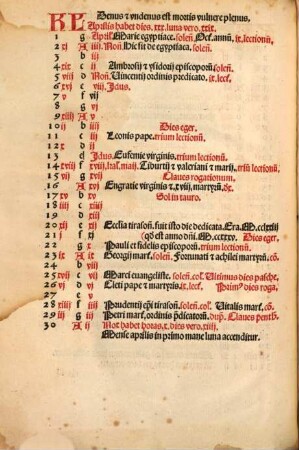 Denus et undenus est mortis vulnere plenus.
KL Aprilis habet dies. xxx. luna vero. xxix.
1 g April. Marie egyptiace. solen. Def. annu. ix. lectionu.
2 xi A iiii. Non. Dicsit de egyptiaca. solen.
3 b iii
4 xix c ii Ambrosii et ysidori episcoporu. solen.
5 viii d Non. Vincenti ordinis predicato. ix. lec.
6 xvi e viii. Idus.
7 v f vii
8 g vi
9 xiii A v
10 ii b iiii Dies eger.
11 c iii Leonis pape. trium lectionu.
12 x d ii
13 e Idus. Eufemie virginis. trium lectionu.
14 xviii f xviii. kal. maii. Tiburtii et valeriani et mar. triu lectionu.
15 vii g xvii Claves rogationum.
16 A xvi Engratie virginis et. xviii. martyru. dx.
17 xv b xv Sol in tauro.
18 iiii c xiiii
19 d xiii
20 xii e xii Ecclia tirason. fuit isto die dedicata. Era. M. cclxxiii
21 i f xi (qd est anno dni. M. ccxxxv. Dies eger.
22 g x Pauli et fidelis episcoporu. trium lectionu.
23 ix A ix Georgii mar. solen. Fortunati et achilei martyru. co.
24 b viii
25 xvii c vii Marci evangeliste. solen. col. Ultimus dies pasche.
26 vi d vi Cleti pape et martyris. ix. lec. Primus dies roga.
27 e v
28 xiiii f iiii Prudentii epi tirason. solen. col. Vitalis mar. co.
29 iii g iii Petri mar. ordinis predicatoru. dup. Claves penth.
30 A ii Nox habet horas. x. dies vero. xiiii.
Mense aprilis in primo mane luna accenditur.